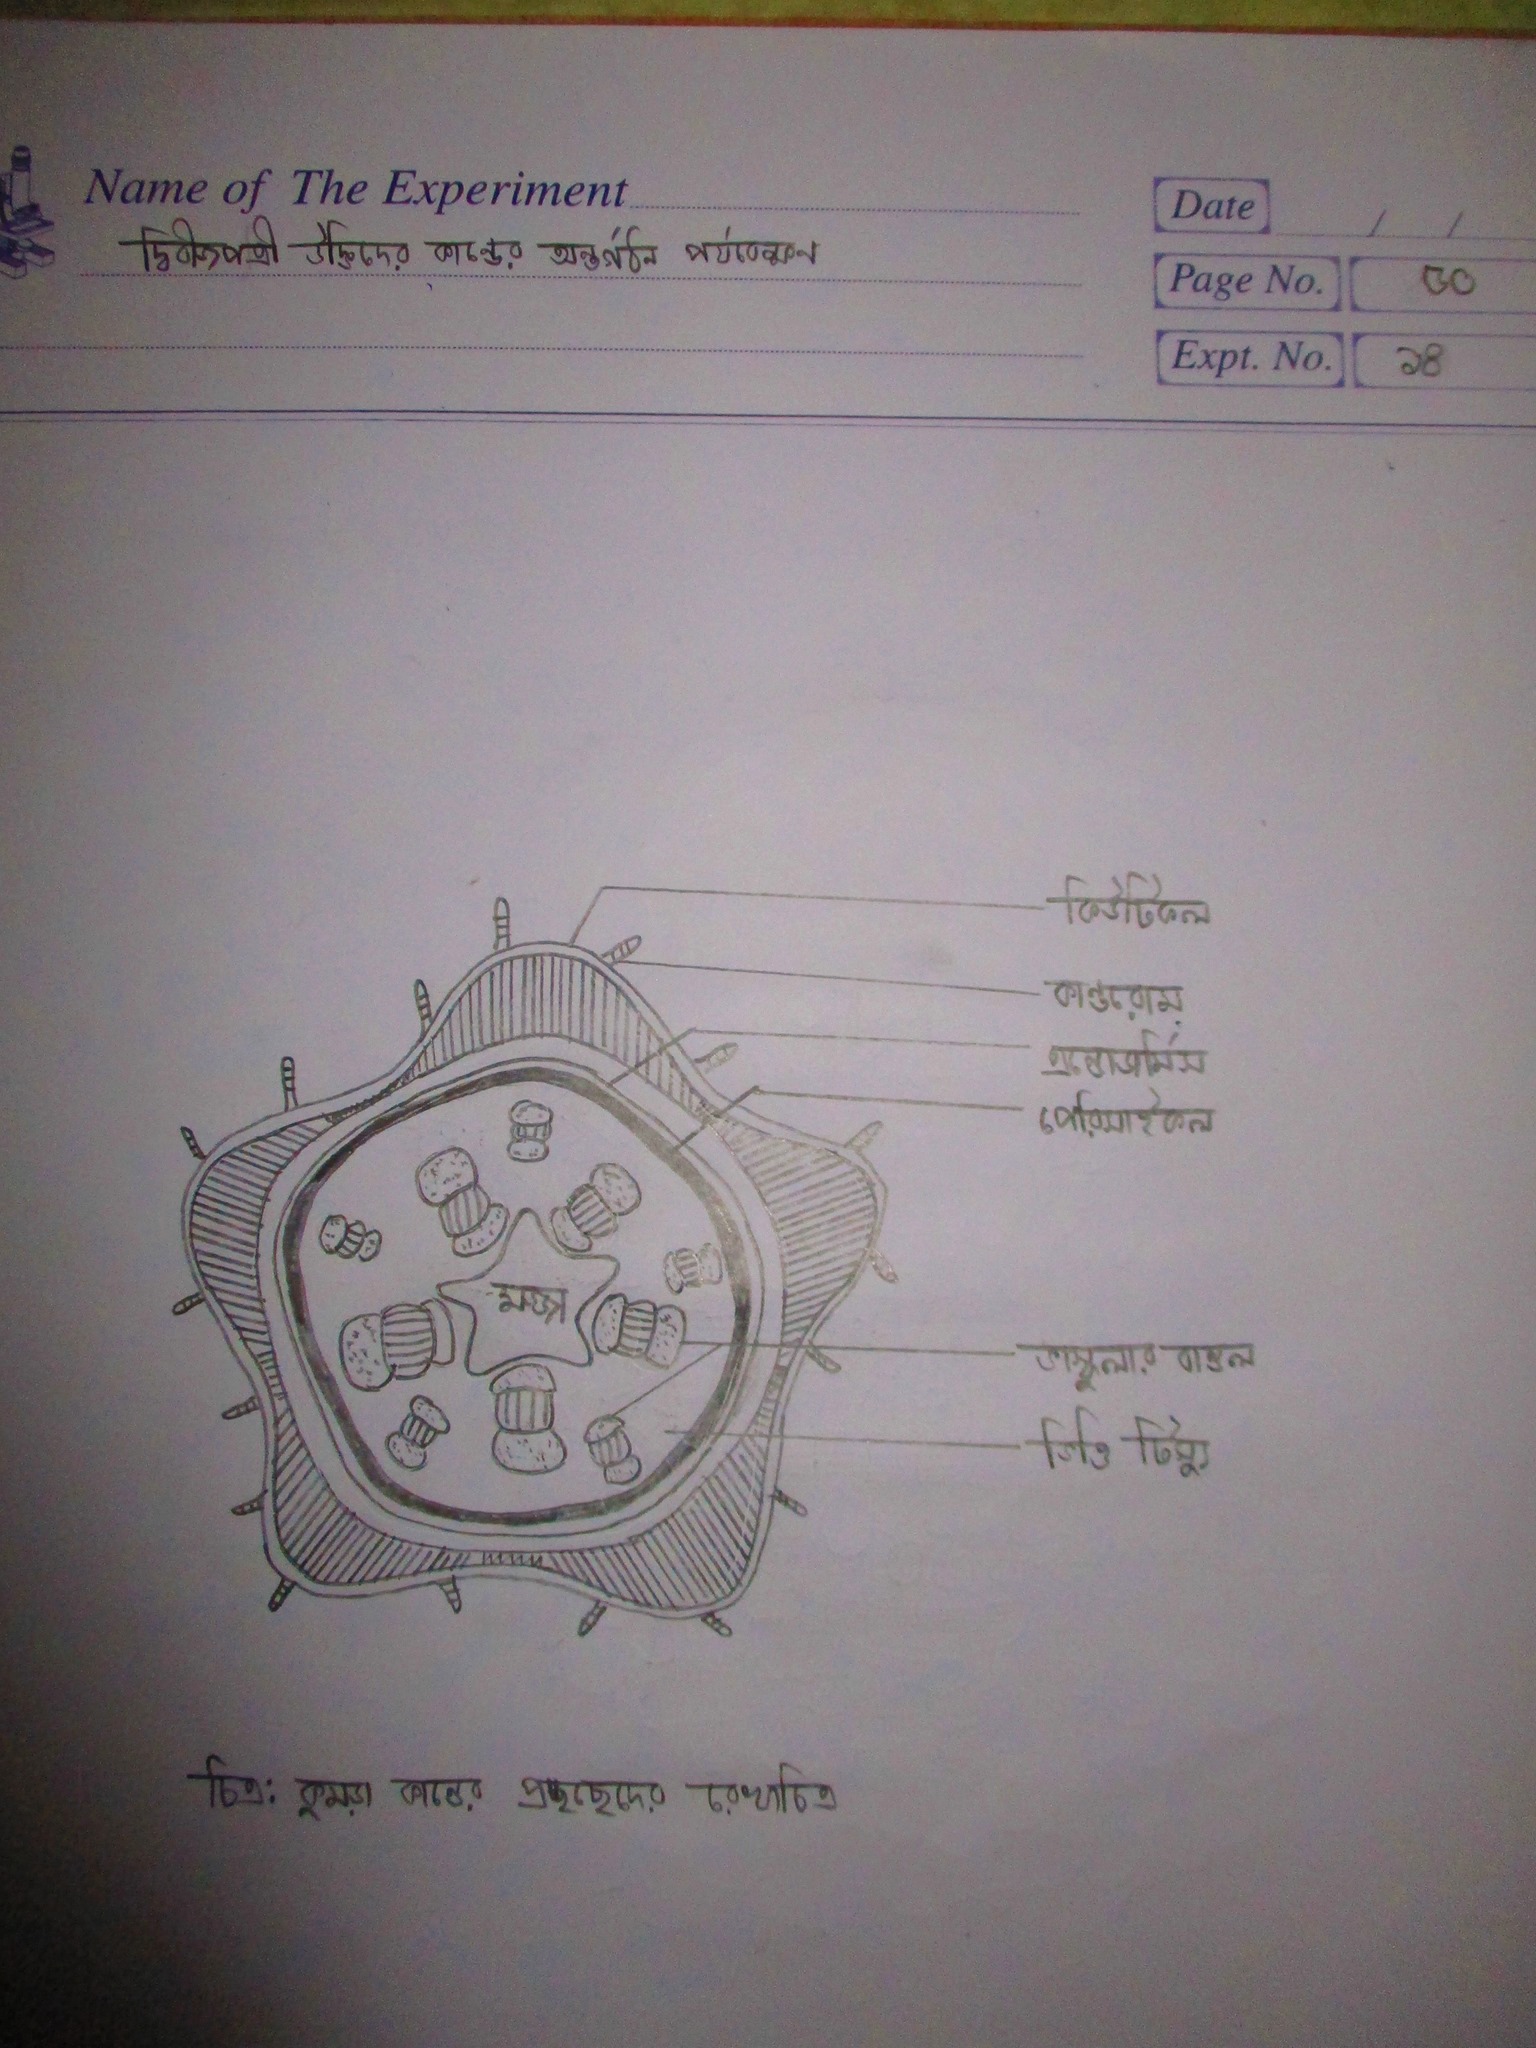 Name of The Experiment
দ্বিবীজপত্রী উদ্ভিদের কান্ডের অন্তর্গঠন পর্যবেক্ষণ
Date / /
Page No. ৩০
Expt. No. ১৪
কিউটিকল
কাণ্ডরোম
এন্ডোডার্মিস
পেরিসাইকল
মজ্জা
ভাস্কুলার বান্ডল
ভিত্তি টিস্যু
চিত্র: কুমড়া কান্ডের প্রস্থচ্ছেদের রেখাচিত্র